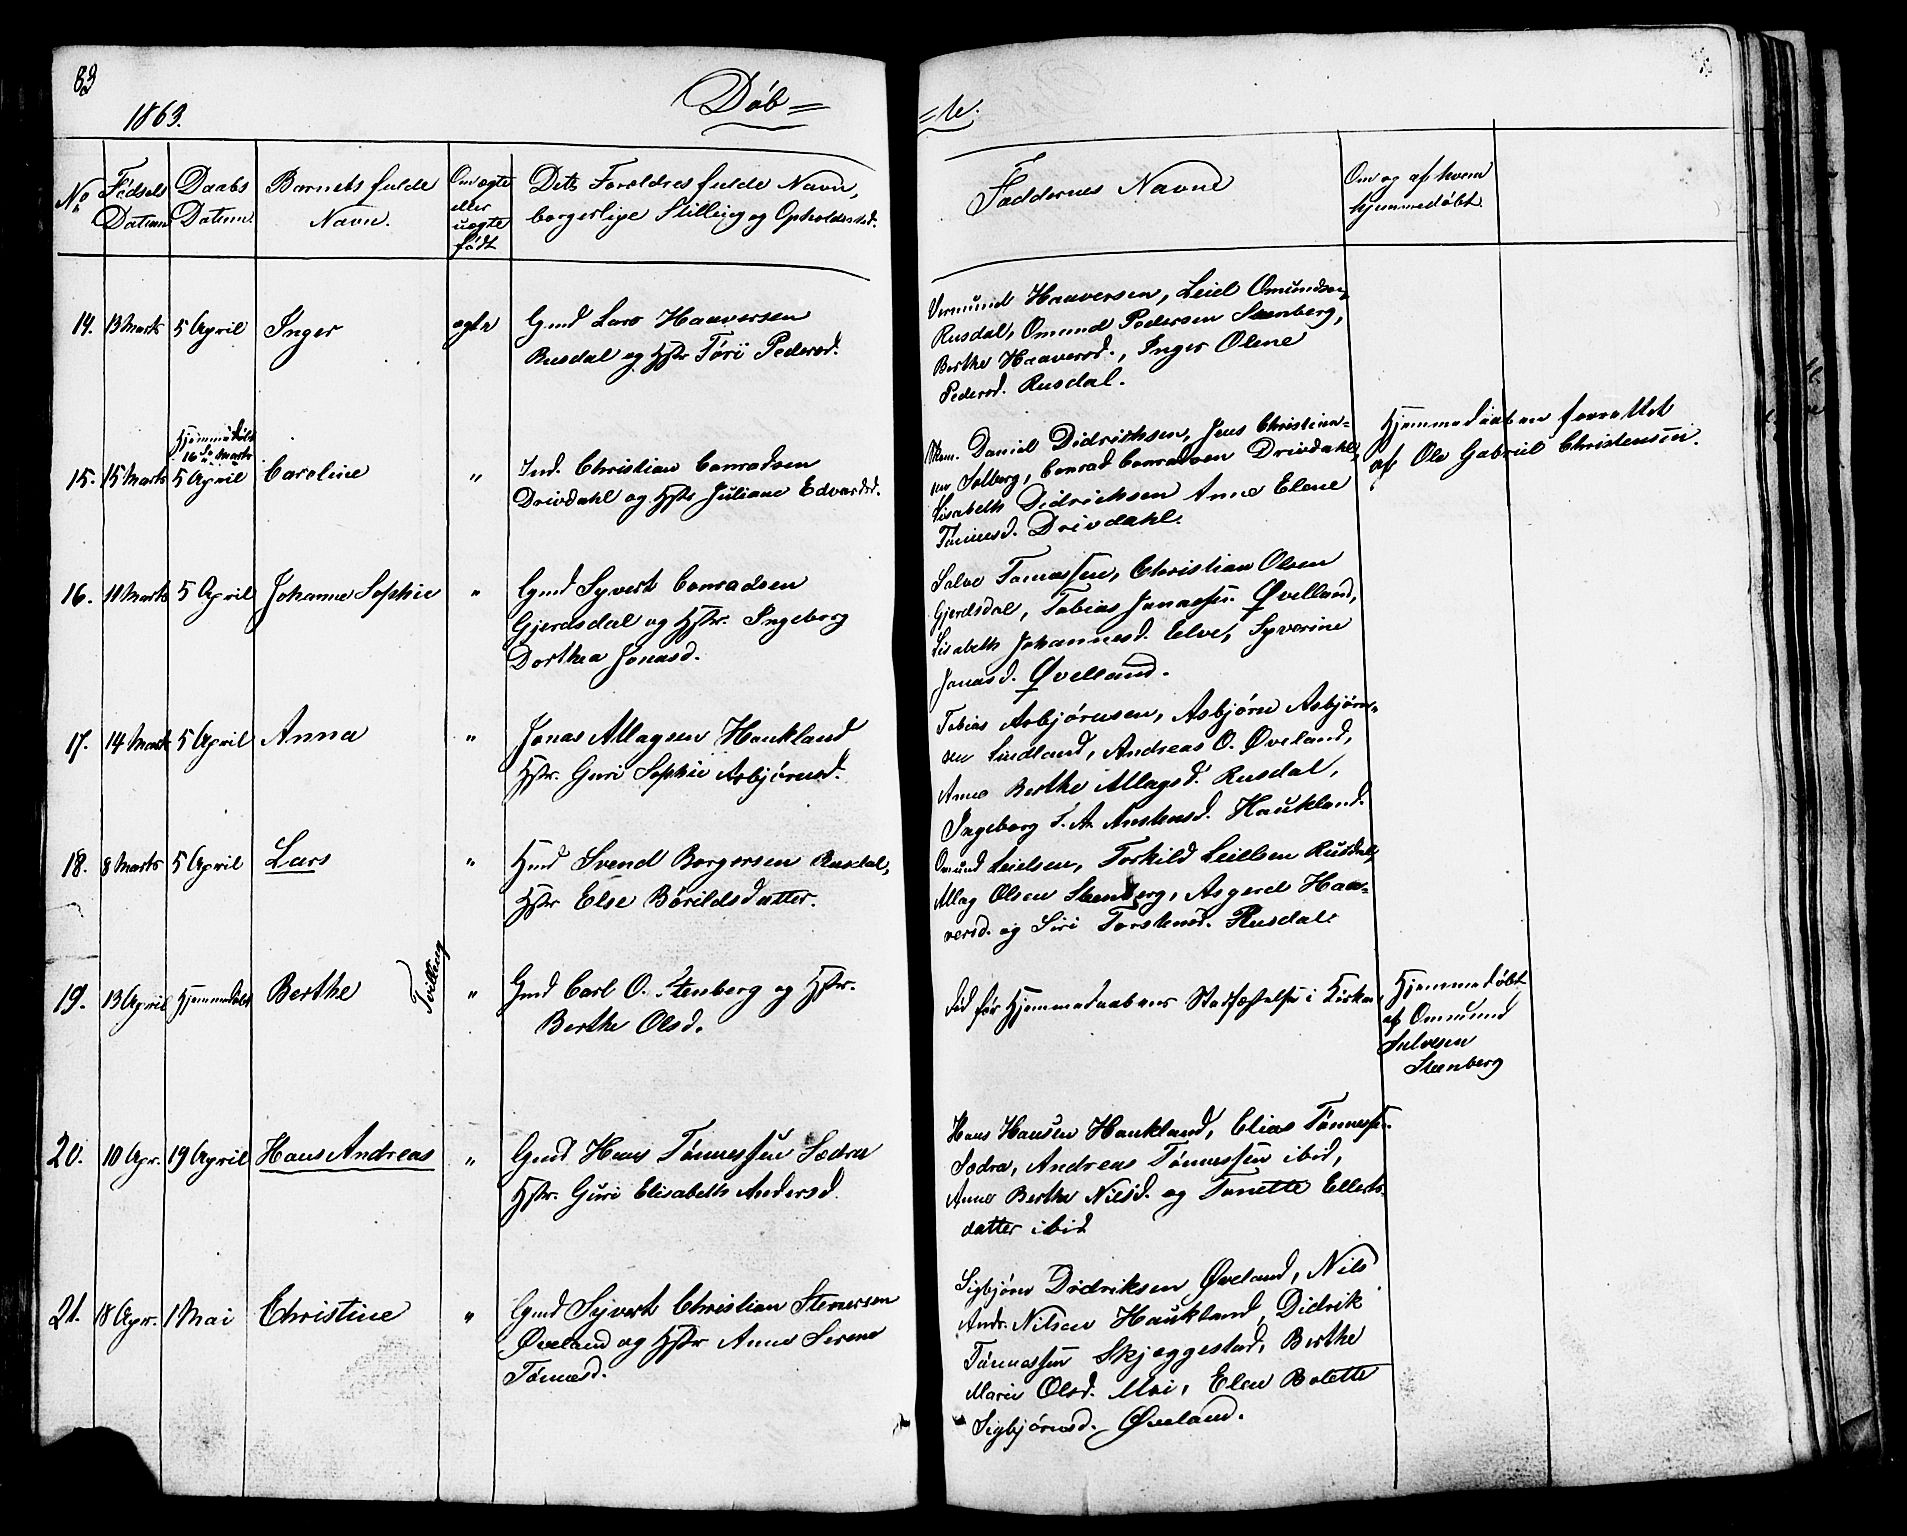 83
1863.
Døb=
=te.
No
Fødsels
Datum
Daabs
Datum
Barnets fulde
Navn.
Om ægte
eller
uægte
født
Dets Forældres fulde Navn,
borgerlige Stilling og Opholdssted.
Faddernes Navne
Om og af hvem
hjemmedøbt.
14. 13 Marts 5 April Inger ægte
Gmd Lars Haaversen
Rusdal og Hstr Tøri Pedersd.
Vermund Haaversen, Leiel Omundsen
Rusdal, Omund Pedersen Steenberg,
Berthe Haaversd., Inger Olene
Pedersd. Rusdal.
15. 15 Marts
Hjemmedøbt
16de Marts
5 April
Caroline "
Ind. Christian Conradsen
Drivdahl og Hstr Juliane Edvardsd.
Daniel Didrichsen, Jens Christian-
sen Solberg, Conrad Conradsen Drivdahl,
Lisabeth Didrichsen Anne Elene
Tønnesd. Drivdahl.
Hjemmedaaben forrettet
af Ole Gabriel Christensen.
16. 11 Marts 5 April Johanne Sophie "
Gmd Syvert Conradsen
Gjerdsdal og Hstr. Ingeborg
Dorthea Jonasd.
Salve Tomassen, Christian Olsen
Gjerdsdal, Tobias Jonassen Øvelland,
Lisabeth Johannesd. Elve, Syverine
Jonasd. Øvelland.
17. 14 Marts 5 April Anna "
Jonas Allagsen Haukland
Hstr. Guri Sophie Asbjørnsd.
Tobias Asbjørnsen, Asbjørn Asbjørn-
sen Lindland, Andreas O. Øveland,
Anne Berthe Allagsd. Rusdal,
Ingeborg T. A. Anstensd. Haukland.
18. 8 Marts 5 April Lars "
Hmd Svend Borgersen Rusdal,
Hstr Else Børildsdatter.
Omund Leielsen, Torkild Leielsen Rusdal,
Allag Olsen Steenberg, Asgerd Haa-
versd. og Siri Torstensd. Rusdal.
19. 13 April Hjemmedøbt Berthe
Tvilling
"
Gmd Carl O. Stenberg og Hstr.
Berthe Olsd.
Død før Hjemmedaabens Stadfæstelse i Kirken,
Hjemmedøbt
af Ommund
Salvesen
Steenberg
20. 10 Apr. 19 April Hans Andreas "
Gmd Hans Tønnessen Sædra
Hstr. Guri Elisabeth Andersd.
Hans Hansen Haukland, Elias Tønnessen
Sædra, Andreas Tønnessen ibid,
Anne Berthe Nilsd. og Tonette Ellerts-
datter ibid
21. 18 Apr. 1 Mai Christine "
Gmd Syvert Christian Stenersen
Øveland og Hstr Anne Serene
Tønnesd.
Sigbjørn Didriksen Øveland, Nils
Andr. Nilsen Haukland, Didrik
Tønnessen Skjæggestad, Berthe
Marie Olsd. Moi, Elen Bolette
Sigbjørnsd. Øveland.